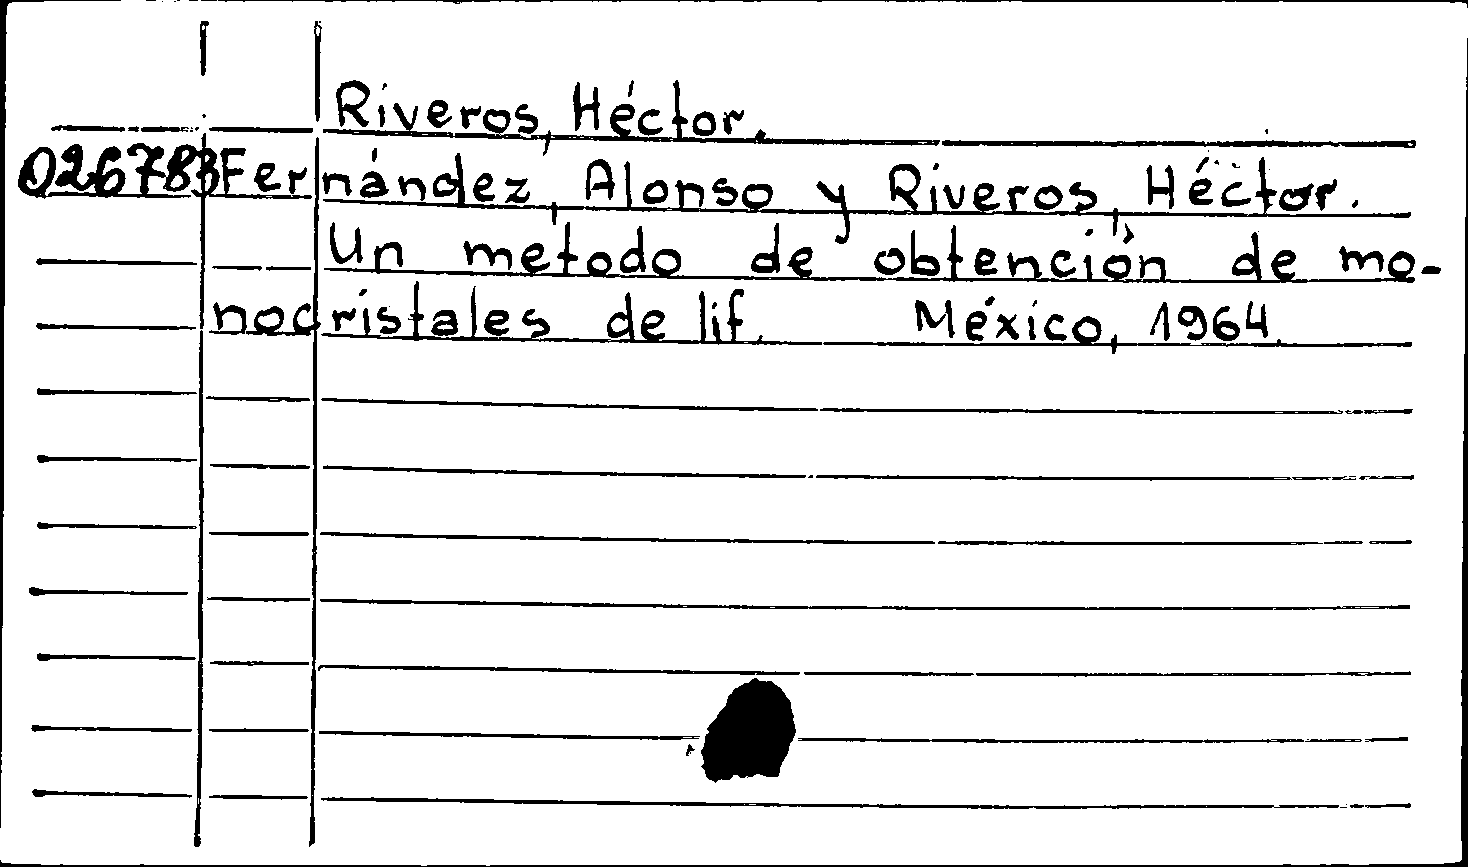 Riveros, Héctor.
026783 Fernández, Alonso y Riveros, Héctor.
Un metodo de obtención de mo-
nocristales de lif. México, 1964.